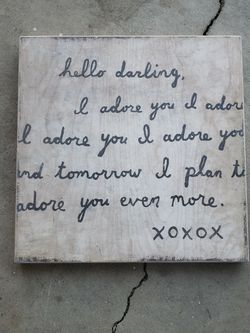 hello darling,
I adore you I adore
I adore you I adore you
and tomorrow I plan to
adore you even more.
xoxox